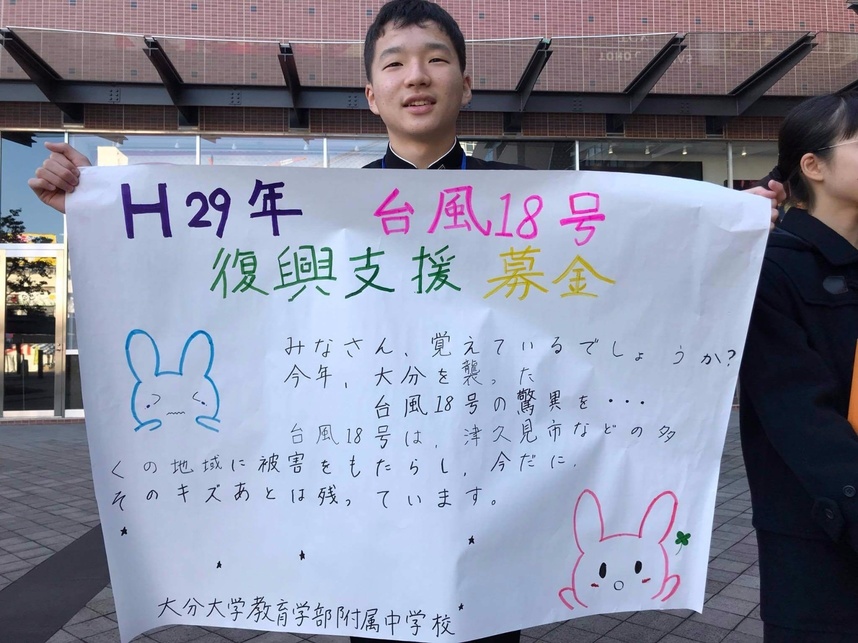 H29年 台風18号
復興支援 募金
みなさん、覚えているでしょうか?
今年、大分を襲った
台風18号の驚異を・・・
台風18号は、津久見市などの多
くの地域に被害をもたらし、今だに、
そのキズあとは残っています。
大分大学教育学部附属中学校